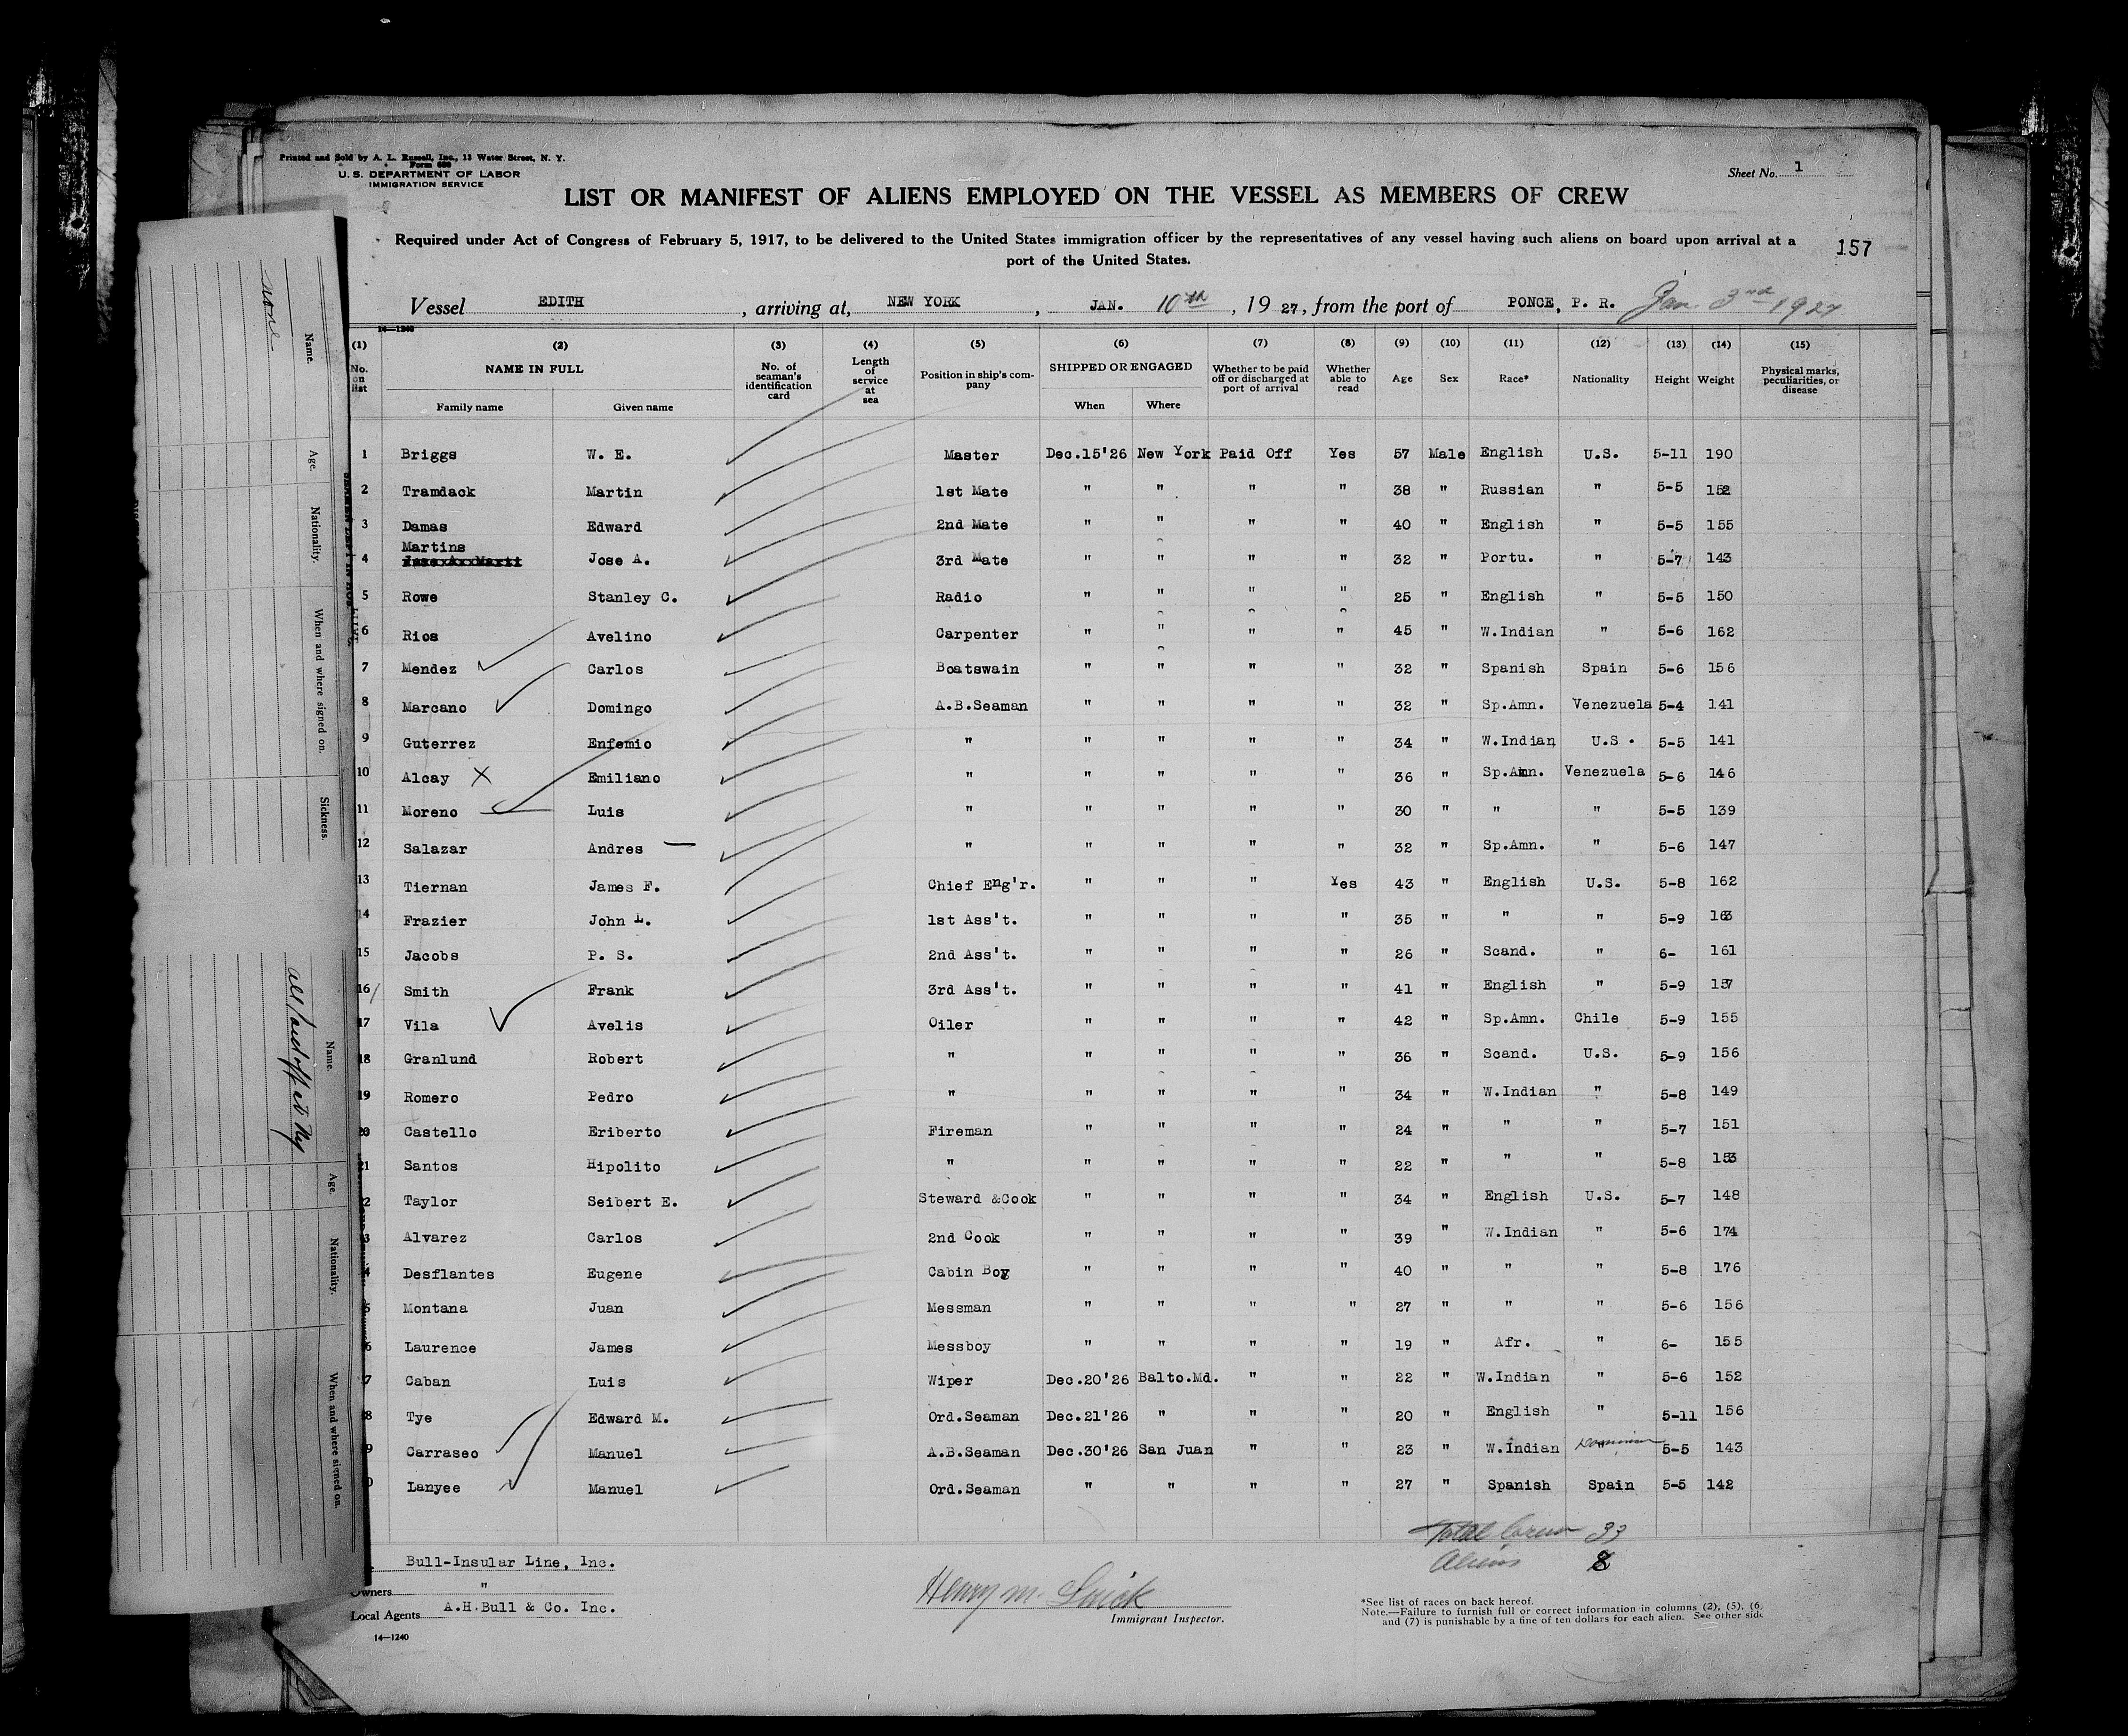 Printed and Sold by A. L. Russell, Inc., 13 Water Street, N. Y.
Form 680
U. S. DEPARTMENT OF LABOR
IMMIGRATION SERVICE
Sheet No. 1
LIST OR MANIFEST OF ALIENS EMPLOYED ON THE VESSEL AS MEMBERS OF CREW
Required under Act of Congress of February 5, 1917, to be delivered to the United States immigration officer by the representatives of any vessel having such aliens on board upon arrival at a
port of the United States.
157
Vessel EDITH, arriving at, NEW YORK, JAN. 10th, 1927, from the port of PONCE, P. R. Jan. 3rd 1927
14—1240
(1) (2) (3) (4) (5) (6) (7) (8) (9) (10) (11) (12) (13) (14) (15)
No. on list NAME IN FULL Family name Given name No. of seaman's identification card Length of service at sea Position in ship's company SHIPPED OR ENGAGED When Where Whether to be paid off or discharged at port of arrival Whether able to read Age Sex Race* Nationality Height Weight Physical marks, peculiarities, or disease
1 Briggs W. E. Master Dec.15'26 New York Paid Off Yes 57 Male English U.S. 5-11 190
2 Tramdack Martin 1st Mate " " " " 38 " Russian " 5-5 152
3 Damas Edward 2nd Mate " " " " 40 " English " 5-5 155
Martins
4 Jose A. 3rd Mate " " " " 32 " Portu. " 5-7 143
5 Rowe Stanley C. Radio " " " " 25 " English " 5-5 150
6 Rios Avelino Carpenter " " " " 45 " W.Indian " 5-6 162
7 Mendez Carlos Boatswain " " " " 32 " Spanish Spain 5-6 156
8 Marcano Domingo A.B.Seaman " " " " 32 " Sp.Amn. Venezuela 5-4 141
9 Guterrez Enfemio " " " " " 34 " W.Indian U.S. 5-5 141
10 Alcay X Emiliano " " " " " 36 " Sp.Amn. Venezuela 5-6 146
11 Moreno Luis " " " " " 30 " " " 5-5 139
12 Salazar Andres — " " " " " 32 " Sp.Amn. " 5-6 147
13 Tiernan James F. Chief Eng'r. " " " Yes 43 " English U.S. 5-8 162
14 Frazier John L. 1st Ass't. " " " " 35 " " " 5-9 163
15 Jacobs P. S. 2nd Ass't. " " " " 26 " Scand. " 6- 161
16 Smith Frank 3rd Ass't. " " " " 41 " English " 5-9 157
17 Vila Avelis Oiler " " " " 42 " Sp.Amn. Chile 5-9 155
18 Granlund Robert " " " " " 36 " Scand. U.S. 5-9 156
19 Romero Pedro " " " " " 34 " W.Indian " 5-8 149
20 Castello Eriberto Fireman " " " " 24 " " " 5-7 151
21 Santos Hipolito " " " " " 22 " " " 5-8 153
2 Taylor Seibert E. Steward &Cook " " " " 34 " English U.S. 5-7 148
3 Alvarez Carlos 2nd Cook " " " " 39 " W.Indian " 5-6 174
4 Desflantes Eugene Cabin Boy " " " " 40 " " " 5-8 176
5 Montana Juan Messman " " " " 27 " " " 5-6 156
6 Laurence James Messboy " " " " 19 " Afr. " 6- 155
7 Caban Luis Wiper Dec.20'26 Balto.Md. " " 22 " W.Indian " 5-6 152
8 Tye Edward M. Ord.Seaman Dec.21'26 " " " 20 " English " 5-11 156
9 Carraseo Manuel A.B.Seaman Dec.30'26 San Juan " " 23 " W.Indian 5-5 143
0 Lanyee Manuel Ord.Seaman " " " " 27 " Spanish Spain 5-5 142
Total Crew 33
Aliens 8
Bull-Insular Line, Inc.
Owners "
Local Agents A.H.Bull & Co. Inc.
14—1240
Henry M.
Immigrant Inspector.
*See list of races on back hereof.
Note.—Failure to furnish full or correct information in columns (2), (5), (6)
and (7) is punishable by a fine of ten dollars for each alien. See other side
none
Name. Age. Nationality. When and where signed on. Sickness.
all paid off at NY
Name. Age. Nationality. When and where signed on.